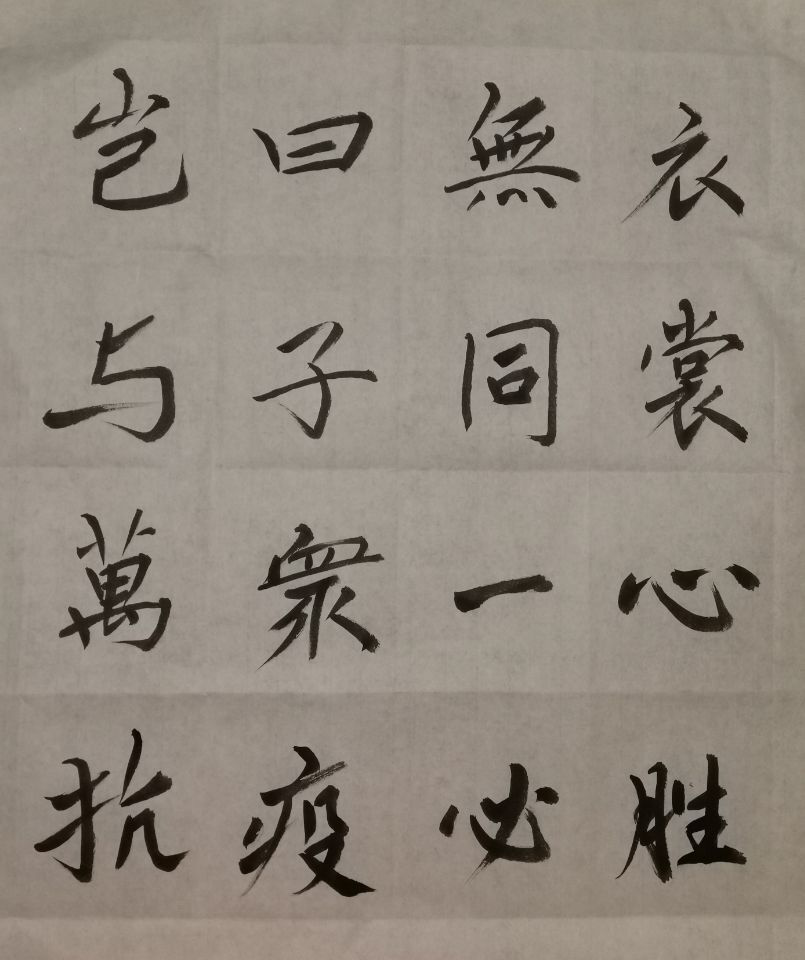 岂曰無衣
与子同裳
萬衆一心
抗疫必胜